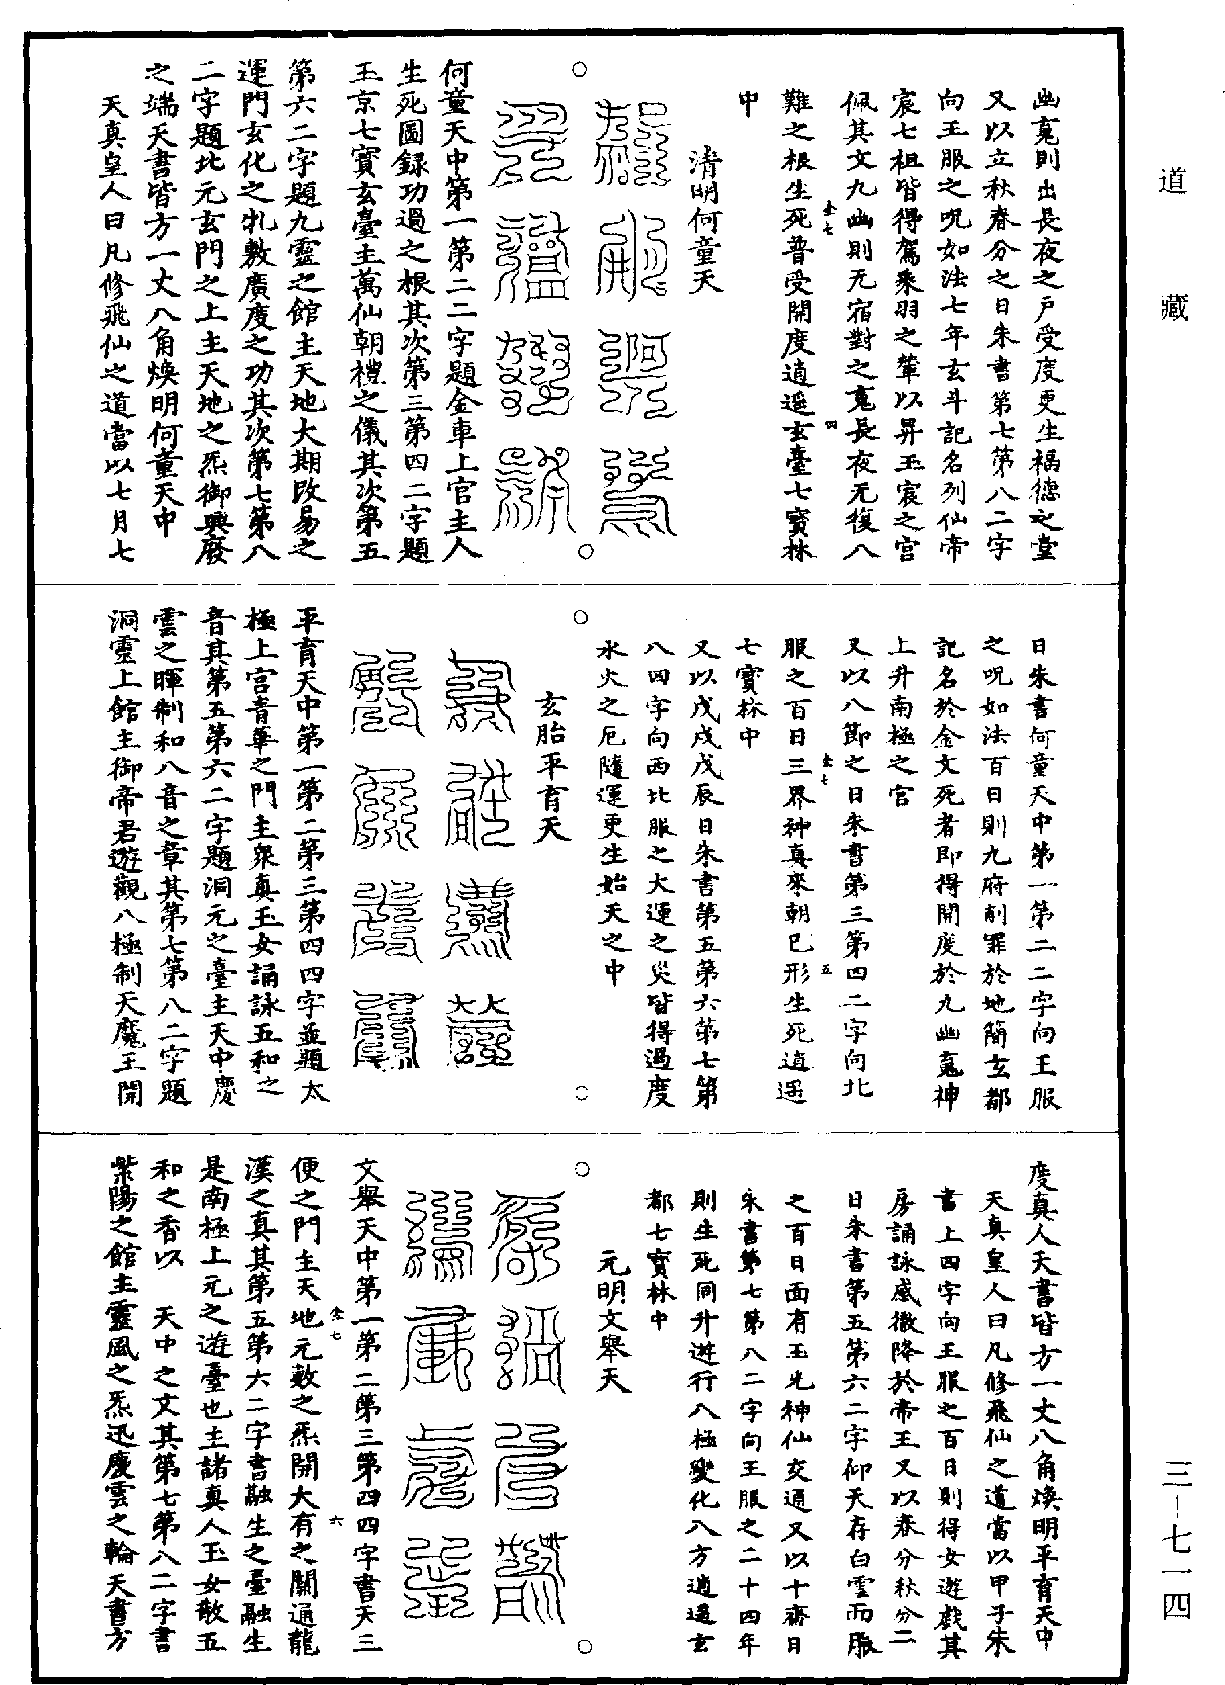 道藏
三—七一四
幽䰟則出長夜之戶受度更生福德之堂
又以立秋春分之日朱書第七第八二字
向王服之呪如法七年玄斗記名列仙帝
宸七祖皆得駕乘羽之輦以昇玉宸之宮
佩其文九幽則无宿對之䰟長夜无復八
難之根生死普受開度逍遥玄臺七寶林
中
清明何童天
何童天中第一第二二字題金車上官主人
生死圖録功過之根其次第三第四二字題
玉京七寶玄臺主萬仙朝禮之儀其次第五
第六二字題九靈之館主天地大期改易之
運門玄化之㐌敷廣度之功其次第七第八
二字題北元玄門之上主天地之炁御興廢
之端天書皆方一丈八角煥明何童天中
天真皇人曰凡修飛仙之道當以七月七
日朱書何童天中第一第二二字向王服
之呪如法百日則九府削罪於地簡玄都
記名於金文死者即得開度於九幽䰟神
上升南極之宮
又以八節之日朱書第三第四二字向北
服之百日三界神真來朝已形生死逍遥
七寶林中
又以戊戌戊辰日朱書第五第六第七第
八四字向西北服之大運之災皆得過度
水火之厄隨運更生始天之中
玄胎平育天
平育天中第一第二第三第四四字並題太
極上宮青華之門主衆真玉女誦詠五和之
音其第五第六二字題洞元之臺主天中慶
雲之暉制和八音之章其第七第八二字題
洞靈上館主御帝君遊觀八極制天魔王開
度真人天書皆方一丈八角煥明平育天中
天真皇人曰凡修飛仙之道當以甲子朱
書上四字向王服之百日則得女遊戲其
房誦詠感徹降於帝王又以春分秋分二
日朱書第五第六二字仰天存白雲而服
之百日面有玉光神仙交通又以十齋日
朱書第七第八二字向王服之二十四年
則生死同升遊行八極變化八方逍遥玄
都七寶林中
元明文舉天
文舉天中第一第二第三第四四字書天三
便之門主天地元數之炁開大有之關通龍
漢之真其第五第六二字書融生之臺融生
是南極上元之遊臺也主諸真人玉女散五
和之香以 天中之文其第七第八二字書
紫陽之館主靈風之炁迅慶雲之輪天書方